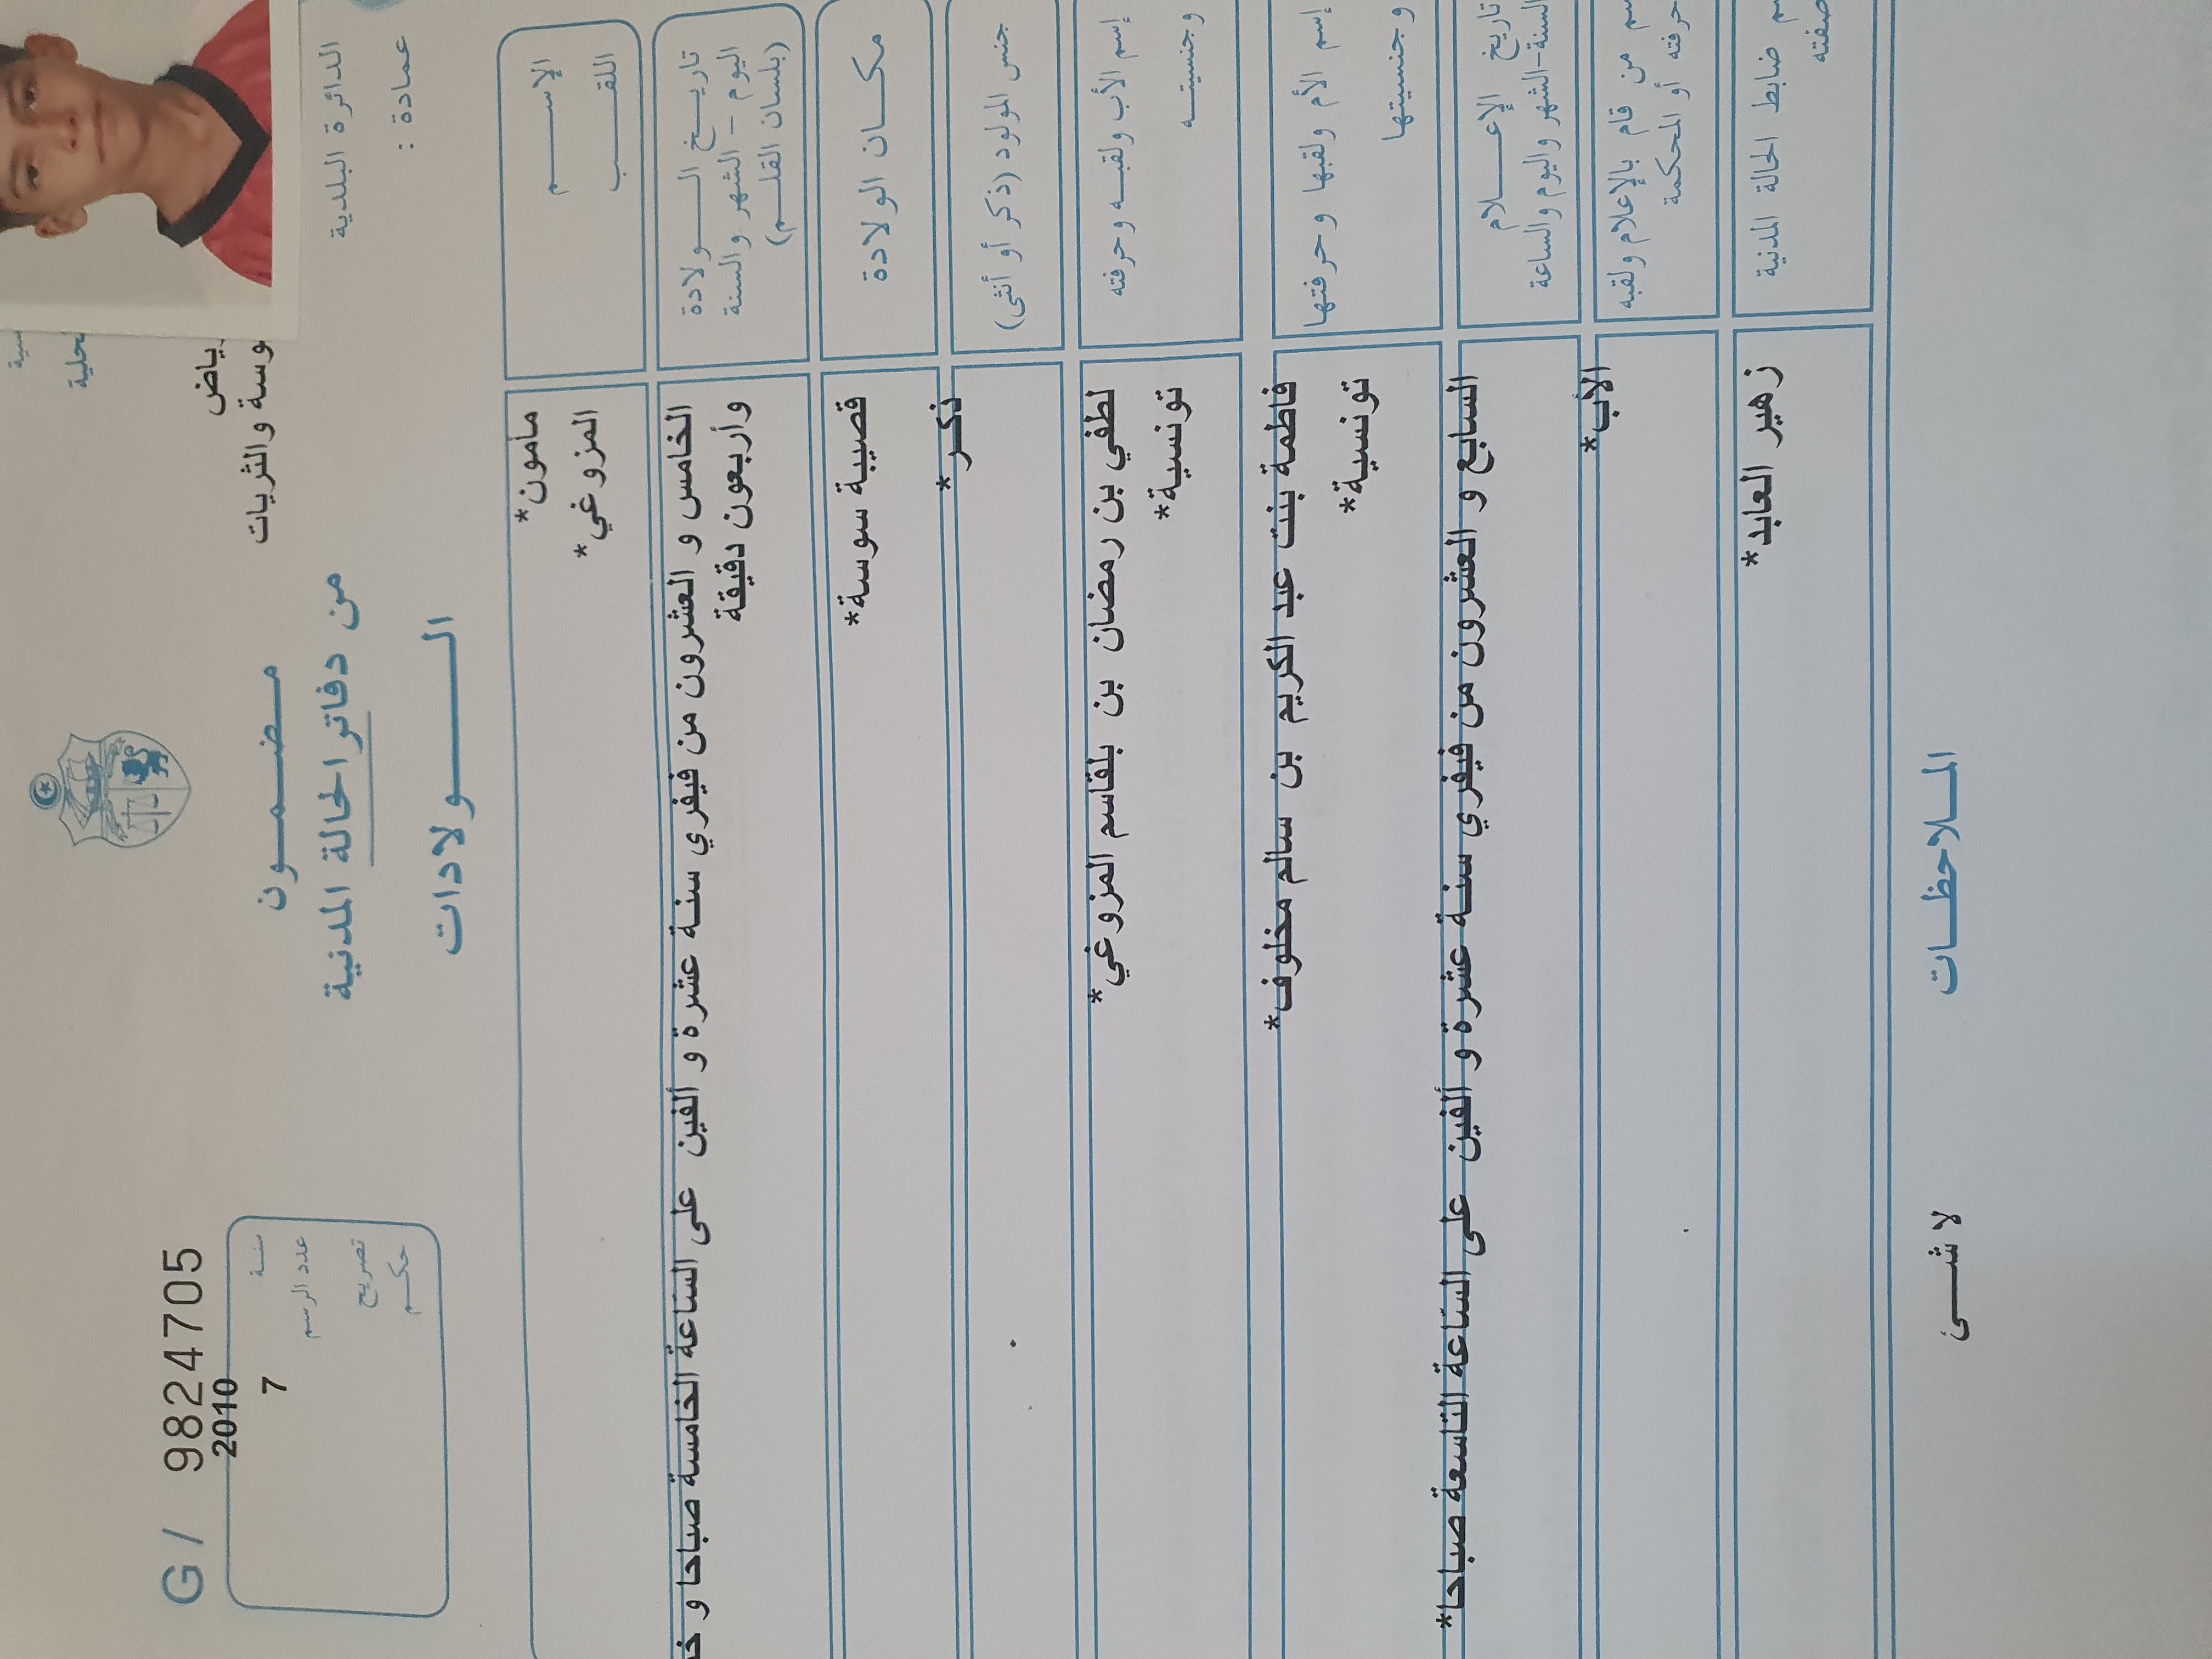 G / 9824705
2010
سنة
7
عدد الرسم
تصريح
حكم
رياض
وسة والثريات
مضمون
من دفاتر الحالة المدنية
الولادات
الدائرة البلدية
عمادة :
الإسم
مامون*
اللقب
المزوغي*
تاريخ الولادة
اليوم - الشهر والسنة
(بلسان القلم)
الخامس و العشرون من فيفري سنة عشرة و ألفين على الساعة الخامسة صباحا و
وأربعون دقيقة
مكان الولادة
قصيبة سوسة*
جنس المولود (ذكر أو أنثى)
ذكر*
إسم الأب ولقبه وحرفته
وجنسيته
لطفي بن رمضان بن بلقاسم المزوغي*
تونسية*
إسم الأم ولقبها وحرفتها
وجنسيتها
فاطمة بنت عبد الكريم بن سالم مخلوف*
تونسية*
تاريخ الإعلام
السنة-الشهر واليوم والساعة
السابع و العشرون من فيفري سنة عشرة و ألفين على الساعة التاسعة صباحا*
من قام بالإعلام ولقبه
حرفته أو المحكمة
الأب*
ضابط الحالة المدنية
زهير العابد*
الملاحظات
لا شئ